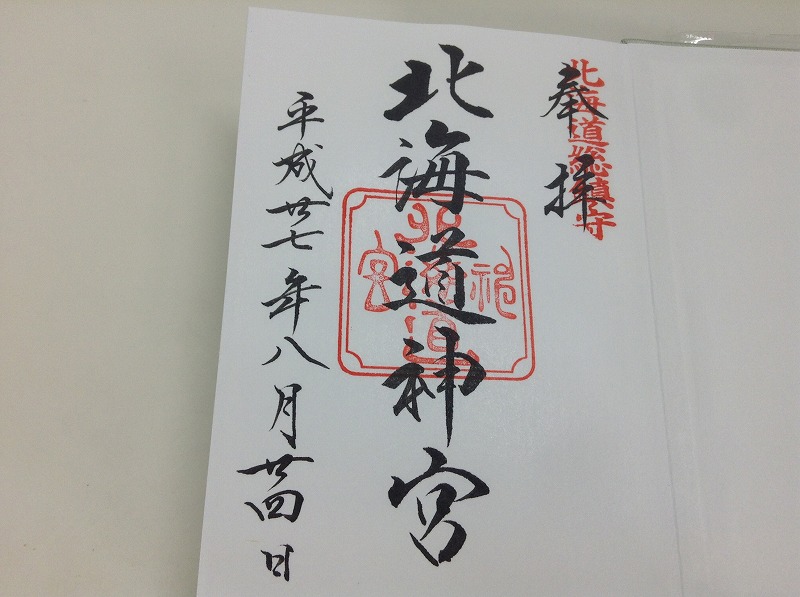 北海道總鎮守
奉拝
北海道神宮
北海道神宮
平成廿七年八月廿四日